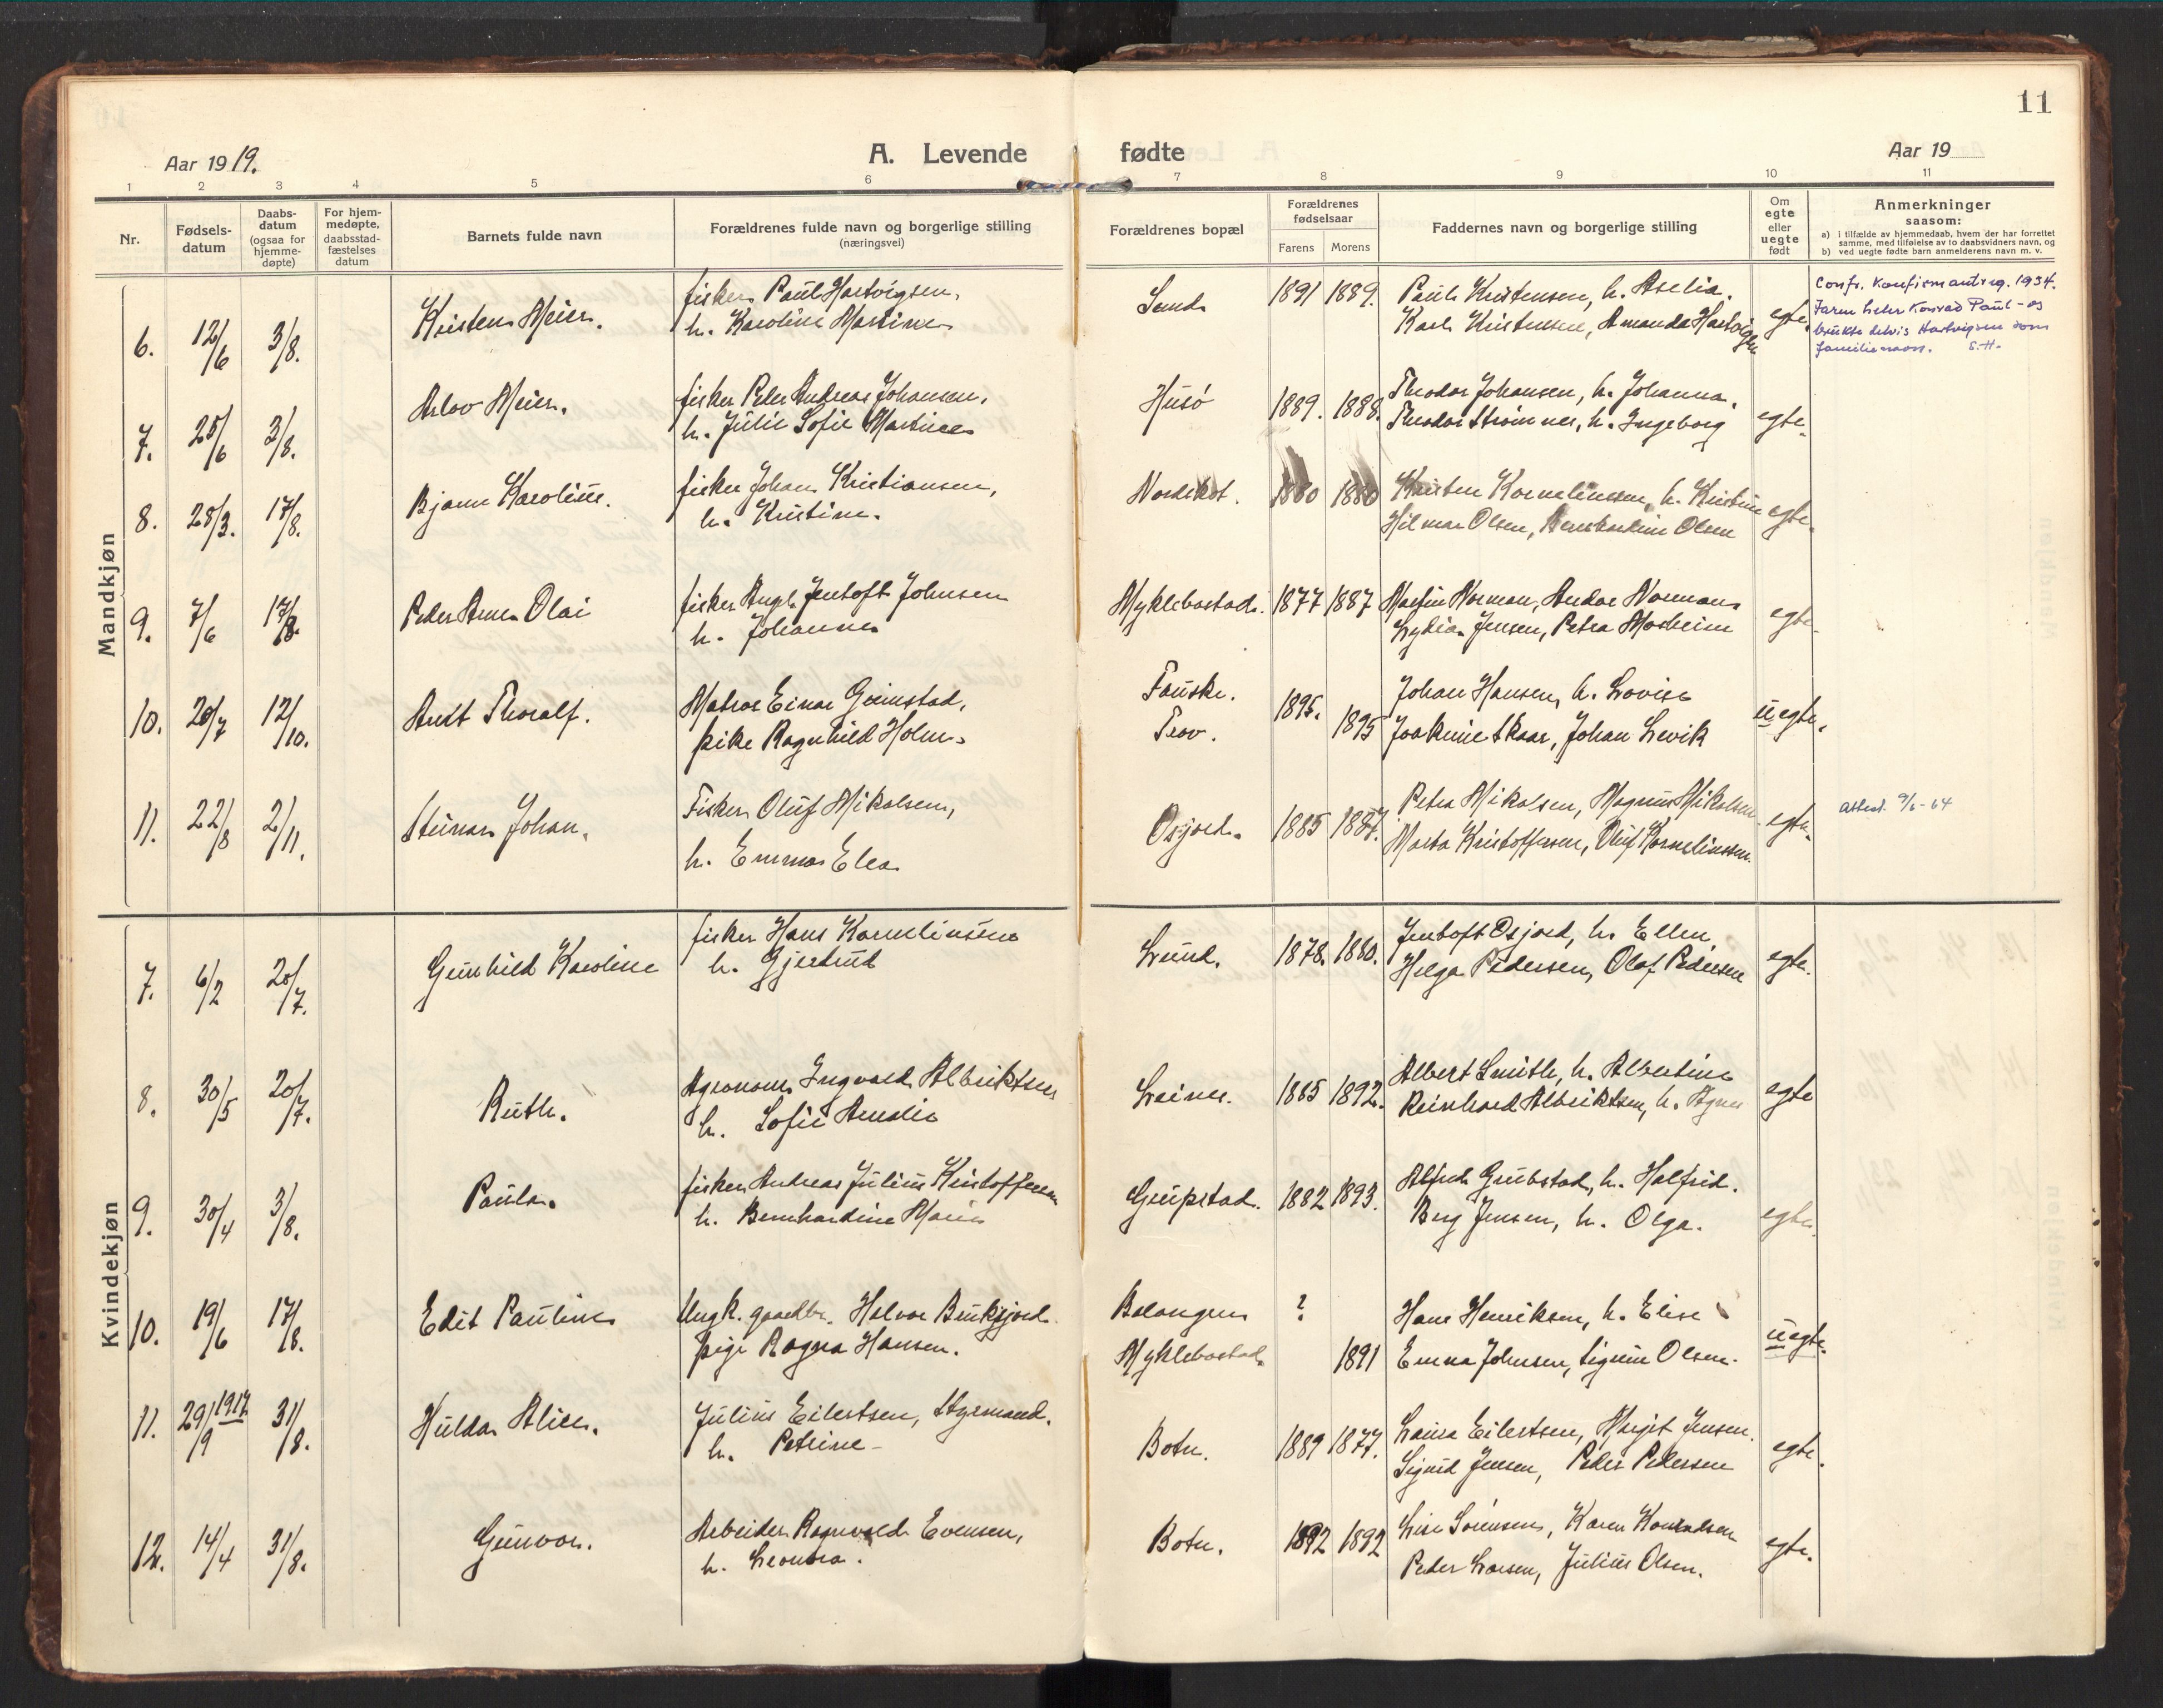 11
Aar 1919.
A. Levende fødte
Aar 19
1 2 3 4 5 6 7 8 9 10 11
Nr.
Fødsels-
datum
Daabs-
datum
(ogsaa for
hjemme-
døpte)
For hjem-
medøpte,
daabsstad-
fæstelses
datum
Barnets fulde navn
Forældrenes fulde navn og borgerlige stilling
(næringsvei)
Forældrenes bopæl
Forældrenes
fødselsaar
Farens Morens
Faddernes navn og borgerlige stilling
Om
egte
eller
uegte
født
Anmerkninger
saasom:
a) i tilfælde av hjemmedaab, hvem der har forrettet
samme, med tilføielse av to daabsvidners navn, og
b) ved uegte fødte barn anmelderens navn m. v.
Mandkjøn
6. 12/6 3/8. Kristen Meier. fisker Paul Hartvigsen, Sand. 1891 1889. Paul Kristensen, h. Aselia. egte.
h. Karoline Martine Karl Kristensen, Amanda Hartvigsen
Confr. Konfirmantreg. 1934.
Faren heter Konrad Paul - og
brukte delvis Hartvigsen som
familienavn. S.H.
7. 25/6 3/8. Arlov Meier. fisker Peder Andreas Johansen, Husö 1889. 1888. Theodor Johansen, h. Johanna. egte.
h. Julie Sofie Martine Theodor Strömnes, h. Ingeborg
8. 28/3. 17/8. Bjarne Karolius. fisker Johan Kristiansen, Nordskot. 1880 1880 Kristen Korneliussen, h. Kristine egte.
h. Kristine. Hilmar Olsen, Bernhardine Olsen
9. 7/6 17/8. Peder Arne Olai fisker Angel Jentoft Johnsen Myklebostad. 1877 1887 Martin Norman, Andor Norman egte.
h. Johanne Lydia Jensen, Petra Moxheim
10. 20/7 12/10. Arnt Thoralf. Matros Einar Grimstad, Fauske. 1895. Johan Hansen, h. Lovise uegte.
pike Ragnhild Holm. Prov. 1895 Joakime Skaar, Johan Levik
11. 22/8 2/11. Steinar Johan. Fisker Oluf Mikalsen, Osjord. 1885 1887. Petra Mikalsen, Magnus Mikalsen. egte. attest. 9/6-64
h. Emma Elea Marta Kristoffersen, Oluf Korneliussen.
Kvindekjøn
7. 6/2 20/7. Gunhild Karoline fisker Hans Korneliussen Lund. 1878. 1880. Jentoft Osjord, h. Ellen egte.
h. Gjertrud Helga Pedersen, Olaf Pedersen
8. 30/5 20/7. Ruth. Agronom Ingvald Albriktsen Leines. 1885 1892. Albert Smith, h. Albertine egte
h. Sofie Amalie Reinhard Albriktsen, h. Agnes
9. 30/4 3/8. Paula. fisker Andreas Julius Kristoffersen Grupstad. 1882 1893. Alfred Grubstad, h. Halfrid. egte.
h. Bernhardine Marie Berg Jensen, h. Olga.
10. 19/6 17/8. Edit Pauline Ungk. gaardbr. Halvor Bruksjord. Balangen ? Hans Henriksen, h. Elise uegte.
pige Ragna Hansen. Myklebostad. 1891 Emma Johnsen, Sigrun Olsen.
11. 29/9 1917 31/8. Hulda Alice. Julius Eilertsen, Styrmand. Botn. 1889 1877. Laura Eilertsen, Margit Jensen. egte.
h. Petrine - Sigurd Jensen, Peder Pedersen
12. 14/4 31/8. Gunvor. Arbeider Ragnvald Evensen, Botn. 1892 1892 Lise Sörensen, Karen Konradsen egte.
h. Leonora. Peder Larsen, Julius Olsen.